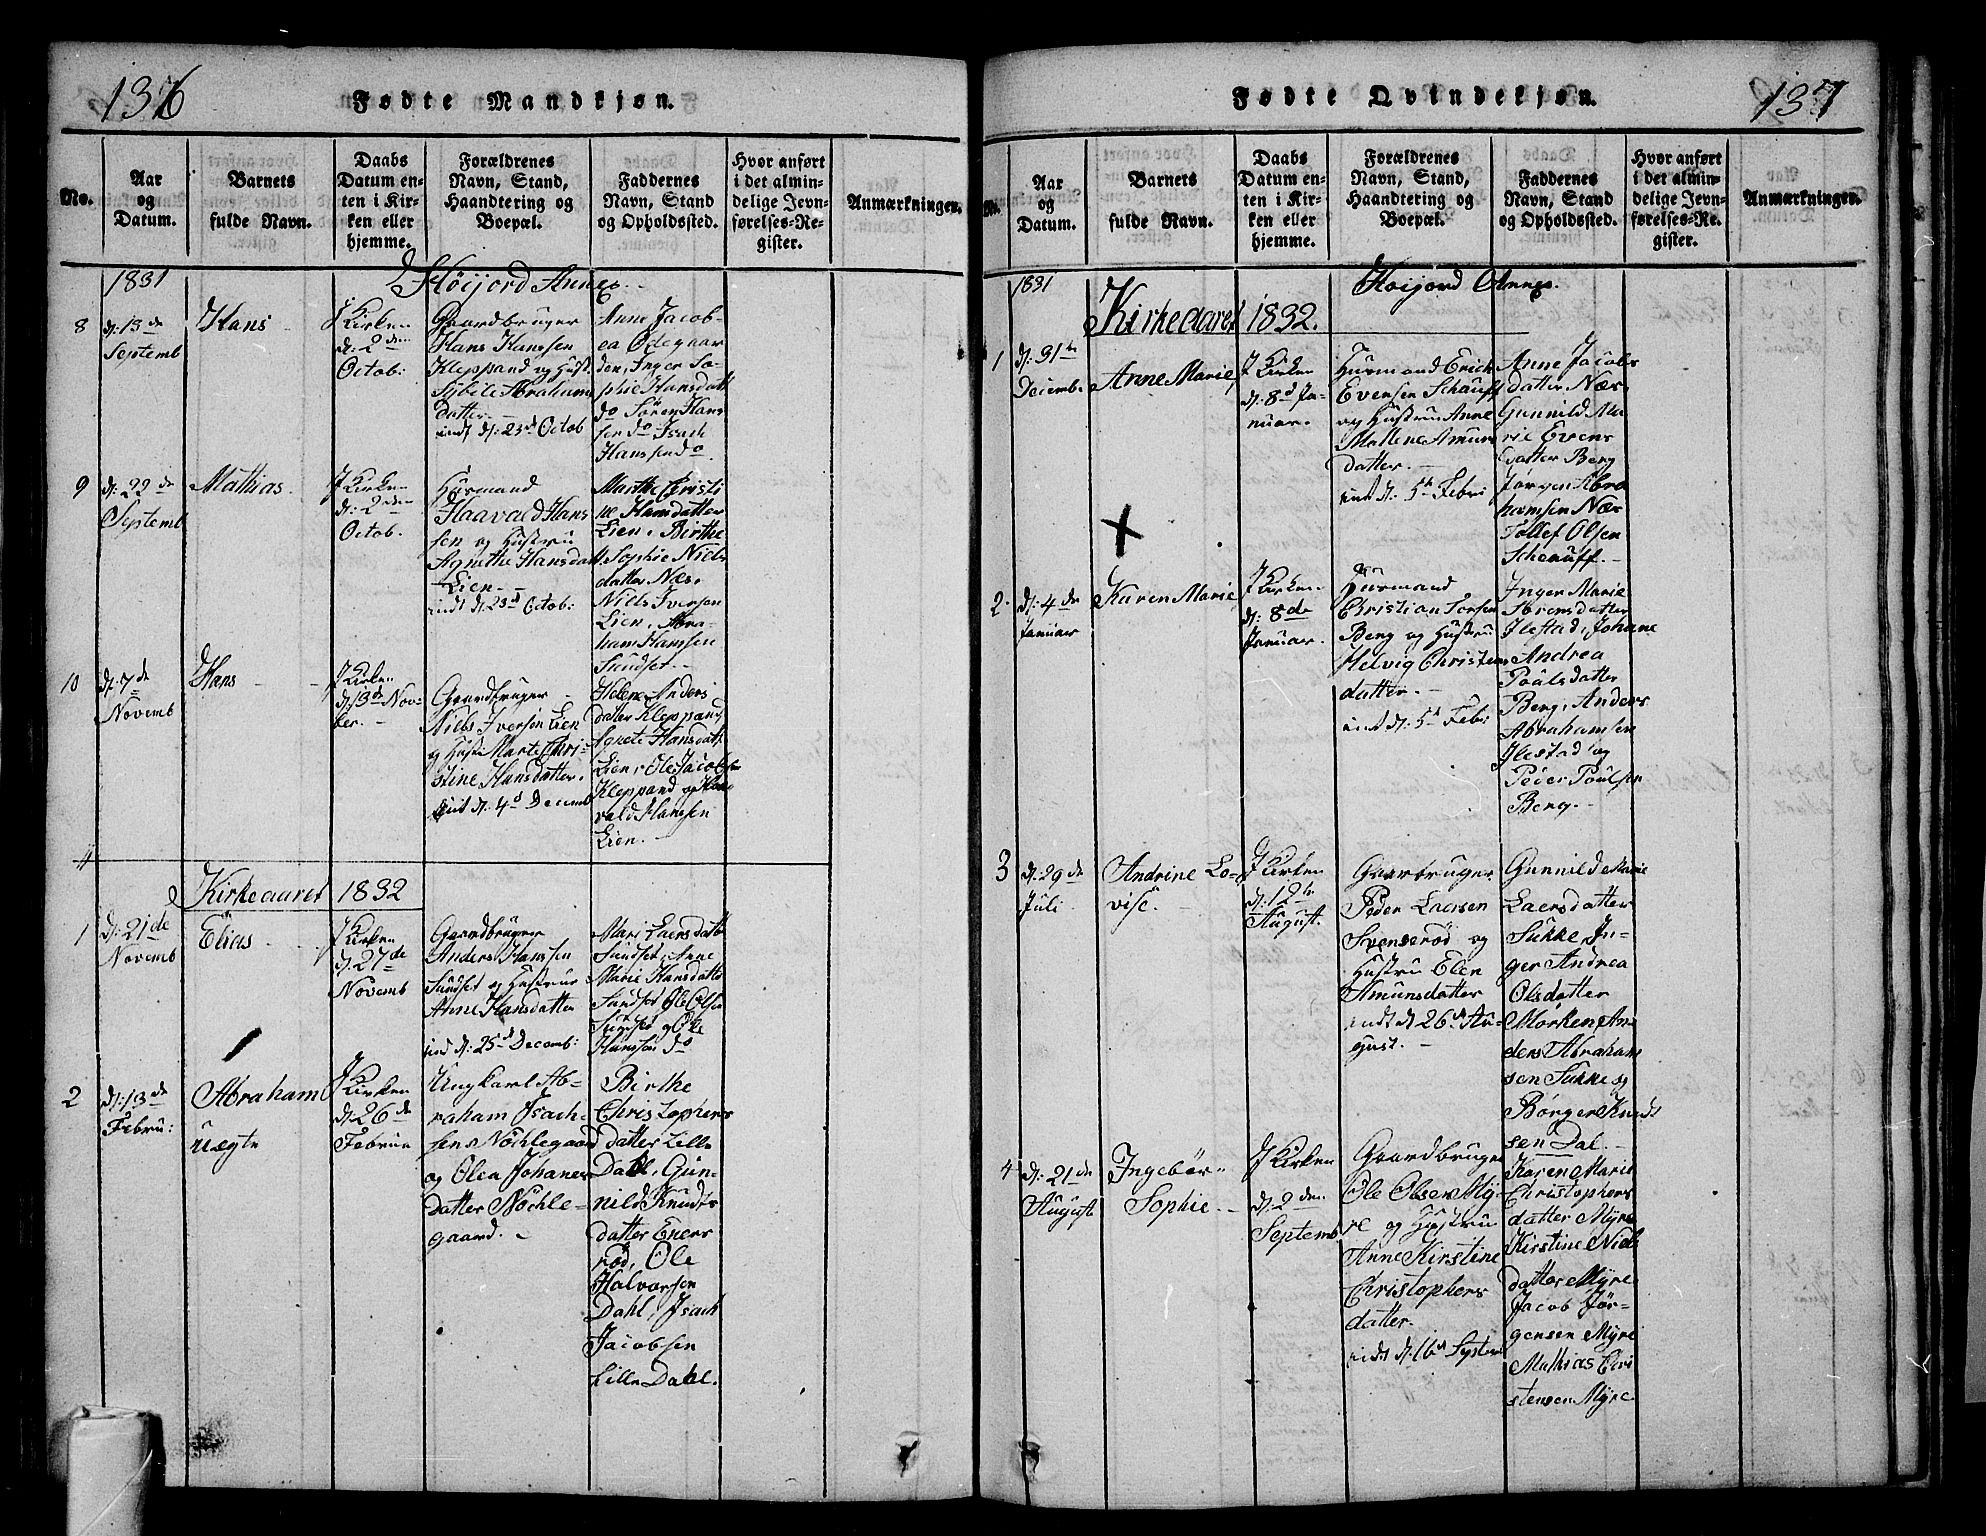 136
Fødte Mandkjøn.
No.
Aar
og
Datum.
Barnets
fulde Navn.
Daabs
Datum en-
ten i Kir-
ken eller
hjemme.
Forældrenes
Navn, Stand,
Haandtering og
Boepæl.
Faddernes
Navn, Stand
og Opholdssted.
Hvor anført
i det almin-
delige Jevn-
førelses-Re-
gister.
Anmærkninger.
1831
Høijord Annex
8
d: 13de
Septemb
Hans
I Kirken
d: 2den
Octob:
Gaardbruger
Hans Hanssen
Kleppand og Hust
Sybile Abrahams
datter
indt d: 23d Octob
Anne Jacob-
ea Ødegaar
den, Inger So-
phie Hansdatt
do Sören Hans
sen do Isach
Hanssen do
9
d: 22de
Septemb
Mathias
I Kirken
d: 2den
Octob.
Huusmand
Haavald Hans
sen og Hustru
Agnethe Hansdatt
Lien
indt d: 23d Octob:
Marthe Christi
ne Hansdatter
Lien, Birthe
Sophie Niels
datter Næs,
Niels Iversen
Lien, Abra-
ham Hanssen
Sundset
10
d: 7de
Novemb
Hans
I Kirken
d: 13d Nov-
ber.
Gaardbruger
Niels Iversen Lien
og Hust: Marte Chri-
stine Hansdatter.
indt d: 4d Decemb
Helene Anders
datter Kleppand
Agnete Hansdatt
Lien, Ole Jacobs
Kleppand og Haa
vald Hanssen
Lien.
Kirkeaaret 1832
1
d: 21de
Novemb
Elias
I Kirken
d: 27de
Novemb
Gaardbruger
Anders Hanssen
Sundset og Hustrue
Anne Hansdatter
ind d: 25d Decemb:
Mari Laersdatt
Sundset, Anne
Marie Hansdatte
Sundset Ole Olsen
Sundset og Ole
Hanssen do
2
d: 13de
Febru:
Abraham
uægte
I Kirken
d: 26de
Februa
Ungkarl Ab-
raham Isach-
sen Nöchlegaard
og Olea Johanes
datter Nöchle-
gaard.
Birthe
Christophers
datter Lille
Dahl, Gun-
nild Knudts
datter Eners
röd, Ole
Halvorsen
Dahl, Isach
Jacobsen
Lille Dahl.
137
Fødte Qvindekjøn.
No.
Aar
og
Datum.
Barnets
fulde Navn.
Daabs
Datum en-
ten i Kir-
ken eller
hjemme.
Forældrenes
Navn, Stand,
Haandtering og
Boepæl.
Faddernes
Navn, Stand
og Opholdssted.
Hvor anført
i det almin-
delige Jevn-
førelses-Re-
gister.
Anmærkninger.
1831
Høijord Annex.
Kirkeaaret 1832.
1
d: 31te
Decemb
Anne Marie
I Kirken
d: 8d Ja-
nuar.
Huusmand Erich
Evensen Schauff
og Hustru Anne
Mallene Amun
datter.
indt d: 5t Febri
Anne Jacobs
datter Næs,
Gunnild Ma
rie Evens
datter Berg
Jørgen Abra
hamsen Næs
Tollef Olsen
Schauff.
2.
d: 4de
Januar
Karen Marie
I Kirken
d: 8de
Januar.
Huusmand
Christian Torsen
Berg og Hustru
Helvig Christens
datter.
indt d: 5d Febr
Inger Marie
Sörensdatter
Ilestad, Johane
Andrea
Poulsdatter
Berg, Anders
Abrahamsen
Ilestad og
Peder Poulsen
Berg.
3
d: 29de
Juli
Andrine Lo-
vise.
I Kirken
d: 12te
August.
Gaardbruger
Peder Laersen
Svenseröd og
Hustru Elen
Amunsdatter
indt d 26d Au-
gust.
Gunnild Marie
Laersdatter
Sukke, In-
ger Andrea
Olsdatter
Mørken, An-
ders Abraham
sen Sukke og
Børger Knudt
sen Dal.
4
d: 21de
August
Ingebör-
Sophie.
I Kirken
d: 2den
Septemb
Gaardbruger
Ole Olsen My-
re og Hustru
Anne Kirstine
Christophers
datter.
indt d: 16d Septem
Karen Marie
Christophers
datter Myre
Kirstine Niels
datter Myre
Jacob Jör-
gensen Myre
Mathias Chri
stensen Myre